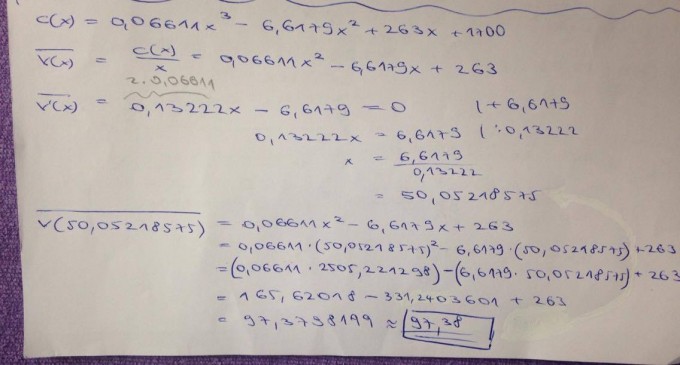 C(x) = 0,06611x³ - 6,6179x² + 263x + 1700
V(x) = C(x)/x = 0,06611x² - 6,6179x + 263
2·0,06611
V'(x) = 0,13222x - 6,6179 = 0 | + 6,6179
0,13222x = 6,6179 | : 0,13222
x = 6,6179/0,13222
= 50,05218575
V(50,05218575) = 0,06611x² - 6,6179x + 263
= 0,06611·(50,05218575)² - 6,6179·(50,05218575) + 263
= (0,06611·2505,221298) - (6,6179·50,05218575) + 263
= 165,62018 - 331,2403601 + 263
= 97,3798199 ≈ 97,38